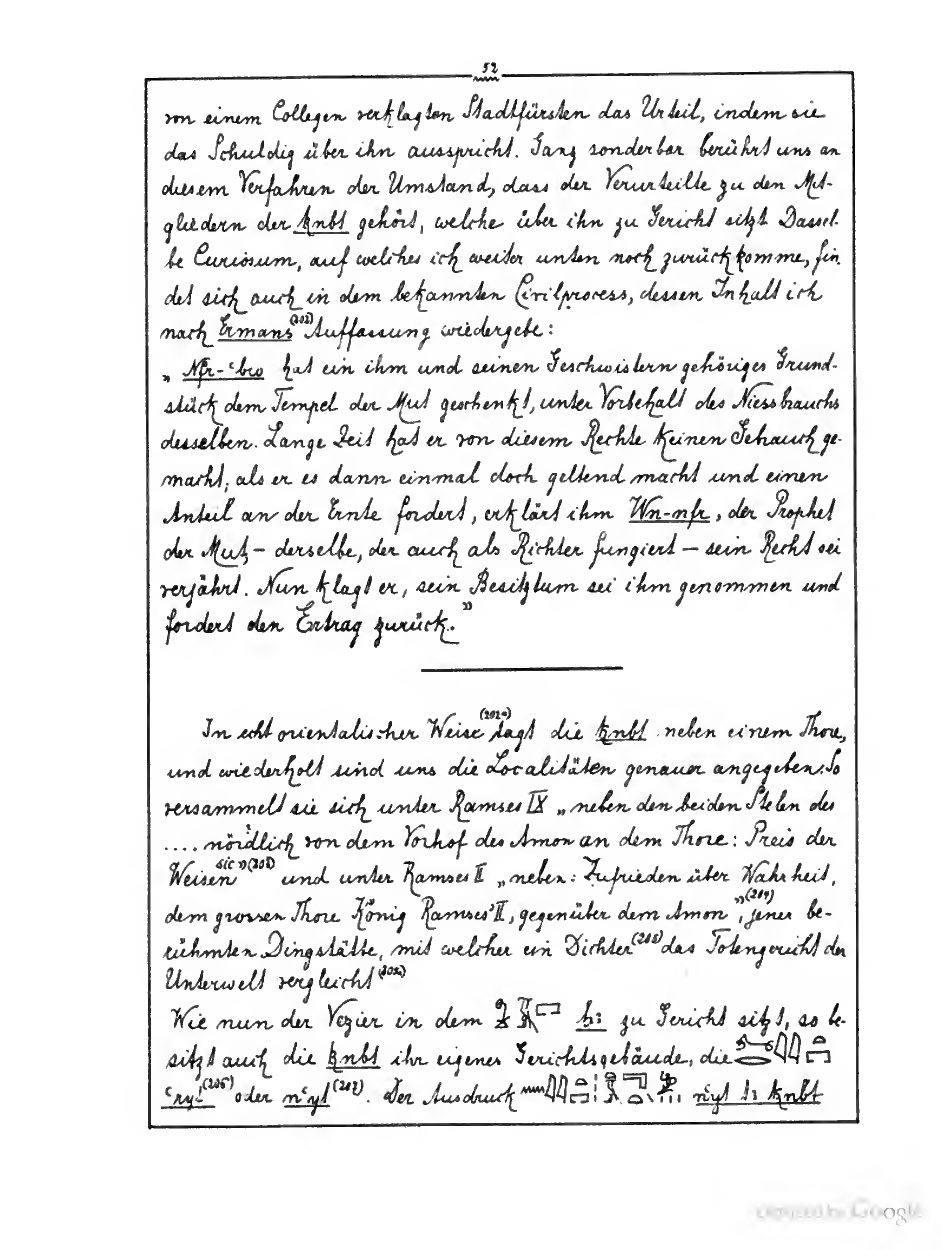 52
von einem Collegen verklagten Stadtfürsten das Urteil, indem sie
das Schuldig über ihn ausspricht. Ganz sonderbar berührt uns an
diesem Verfahren der Umstand, dass der Verurteilte zu den Mit-
gliedern der ḳnbt gehört, welche über ihn zu Gericht sitzt Dassel-
be Curiosum, auf welches ich weiter unten noch zurückkomme, fin
det sich auch in dem bekannten Civilprocess, dessen Inhalt ich
nach Ermans (202) Auffassung wiedergebe:
„ Nfr-ʿbw hat ein ihm und seinen Geschwistern gehöriges Grund-
stück dem Tempel der Mut geschenkt, unter Vorbehalt des Niessbrauchs
desselben. Lange Zeit hat er von diesem Rechte keinen Gebrauch ge-
macht; als er es dann einmal doch geltend macht und einen
Anteil an der Ernte fordert, erklärt ihm Wn-nfr, der Prophet
der Mut, – derselbe, der auch als Richter fungiert – sein Recht sei
verjährt. Nun klagt er, sein Besitztum sei ihm genommen und
fordert den Ertrag zurück.”
In echt orientalischer Weise (202a) tagt die ḳnbt neben einem Thore,
und wiederholt sind uns die Localitäten genauer angegeben. So
versammelt sie sich unter Ramses IX „neben den beiden Stelen des
.... nördlich von dem Vorhof des Amon an dem Thore: Preis der
Weisen sic ” (203) und unter Ramses II „neben: Zufrieden über Wahrheit,
dem grossen Thore König Ramses' II, gegenüber dem Amon ”, (204) jener be-
rühmten Dingstätte, mit welcher ein Dichter (205) das Totengericht der
Unterwelt vergleicht
Wie nun der Vezier in dem zu Gericht sitzt, so be-
sitzt auch die ḳnbt ihr eigenes Gerichtsgebäude, die
ʿryt (206) oder nʿyt (207). Der Ausdruck